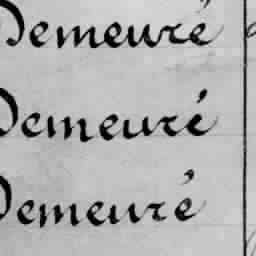 Demeuré
Demeuré
Demeuré